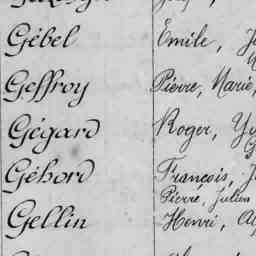 Gébel Emile,
Geffroy Pierre, Marie,
Gégard Roger,
Géhord François,
Pierre, Julien
Gellin Henri,